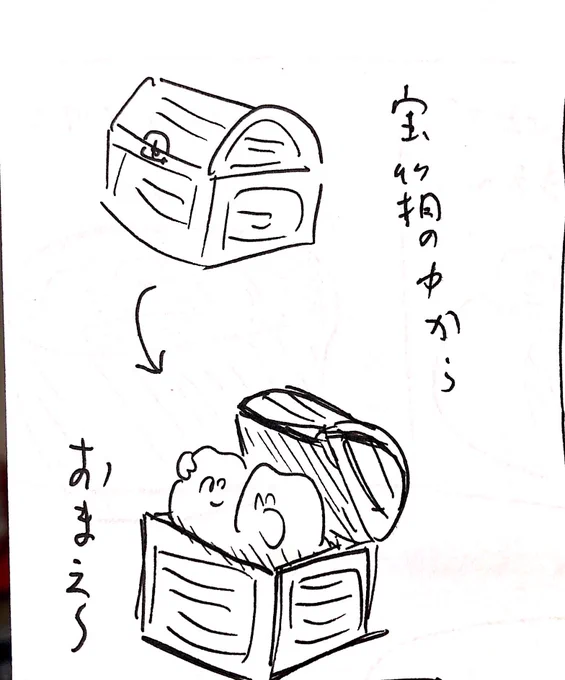 宝箱の中から
おまえ〜